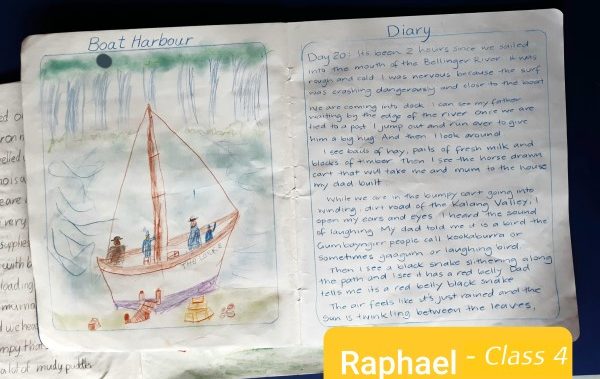 Boat Harbour
Diary
Day 20: Its been 2 hours since we sailed
into the mouth of the Bellinger River. It was
rough and cold I was nervous because the surf
was crashing dangerously and close to the boat
We are coming into dock. I can see my father
waiting by the edge of the river. Once we are
tied to a post I jump out and run over to give
him a big hug. And then I look around
I see bails of hay, pails of fresh milk and
blocks of timber. Then I see the horse drawn
cart that will take me and mum to the house
my dad built
While we are in the bumpy cart going into
winding, dirt road of the Kalang Valley, I
open my ears and eyes. I heard the sound
of laughing. My dad told me it is a bird the
Gumbayngirr people call kookaburra or
sometimes gaagum or laughing bird.
Then I see a black snake slithering along
the path and I see it has a red belly. Dad
tells me its a red belly black snake
The air feels like it's just rained and the
sun is twinkling between the leaves,
a lot of muddy puddles
Raphael - Class 4